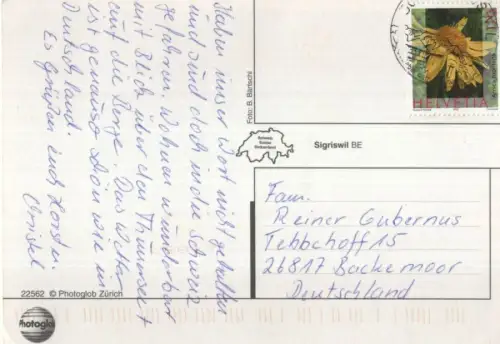 Haben unser Wort nicht gehalten
und sind doch in die Schweiz
gefahren. Wohnen wunderbar
mit Blick über den Thunersee +
auf die Berge. Das Wetter
ist genauso schön wie in
Deutschland.
Es grüßen Euch Horst u.
Christel
Foto: B. Bärtschi
HELVETIA
Sigriswil BE
Fam.
Reiner Gubernus
Tebbehoff 15
26817 Backemoor
Deutschland
22562 © Photoglob Zürich
Photoglob